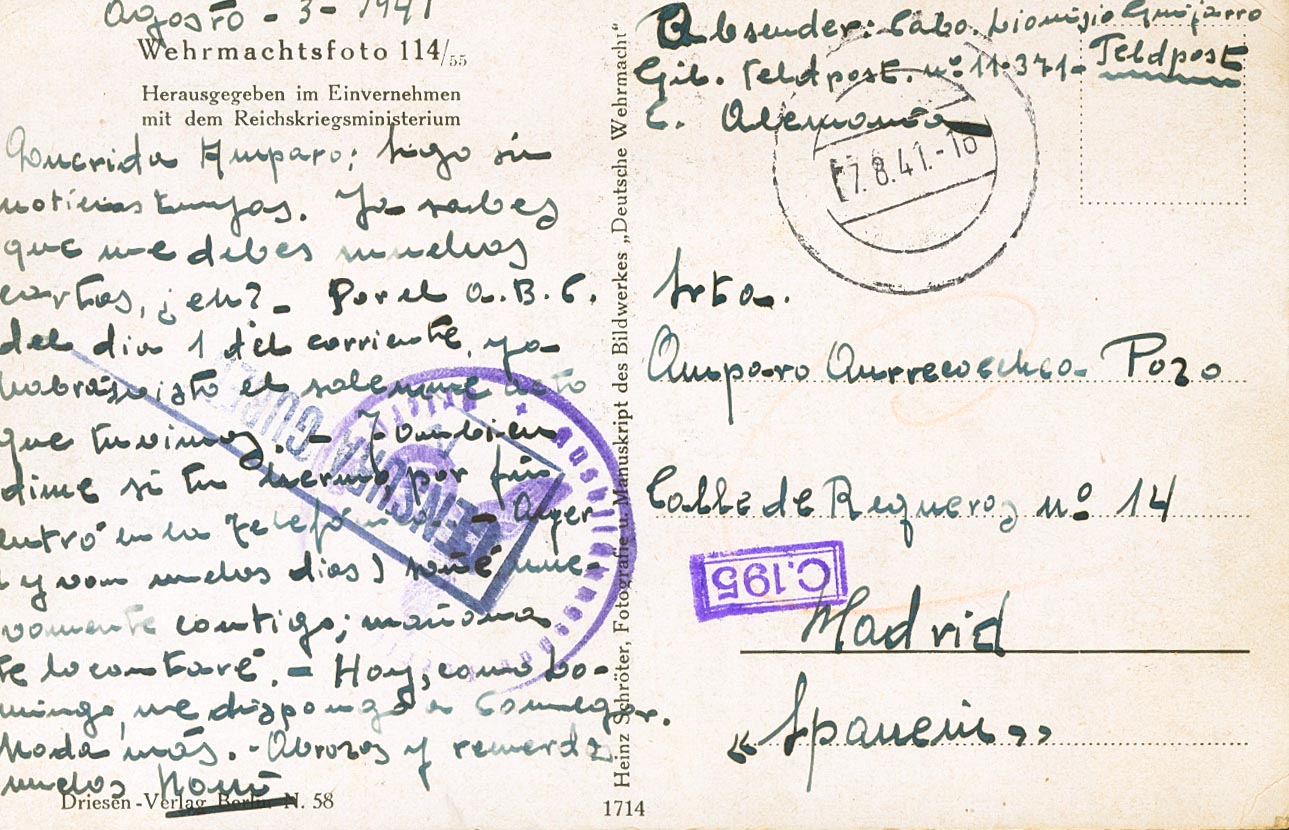 Agosto - 3 - 1941
Wehrmachtsfoto 114/55
Herausgegeben im Einvernehmen
mit dem Reichskriegsministerium
Querida Amparo: Sigo sin
noticias tuyas. Ya sabes
que me debes muchas
cartas, ¿eh? - Por el A.B.C.
del dia 1 del corriente, ya
habrás visto el solemne acto
que tuvimos. - Tambien
dime si tu hermo, por fin
entró en la Telefónica. - Ayer
( y van muchos dias ) soñé nue-
vamente contigo; mañana
te lo contaré. - Hoy, como Do-
mingo, me dispongo a
Nada más. - Abrazos y recuerdos
muchos
Driesen-Verlag Berlin N. 58
CENSURA
Heinz Schröter, Fotografie u. Manuskript des Bildwerkes „Deutsche Wehrmacht"
1714
Absender: Cabo. Dionisio Guijarro
Feldpost. nº 11.371- Feldpost
Alemania
7.8.41.-18
Srta.
Amparo Aurrecoechea Pozo
Calle de Regueros nº 14
C.195
Madrid
"Spanein"